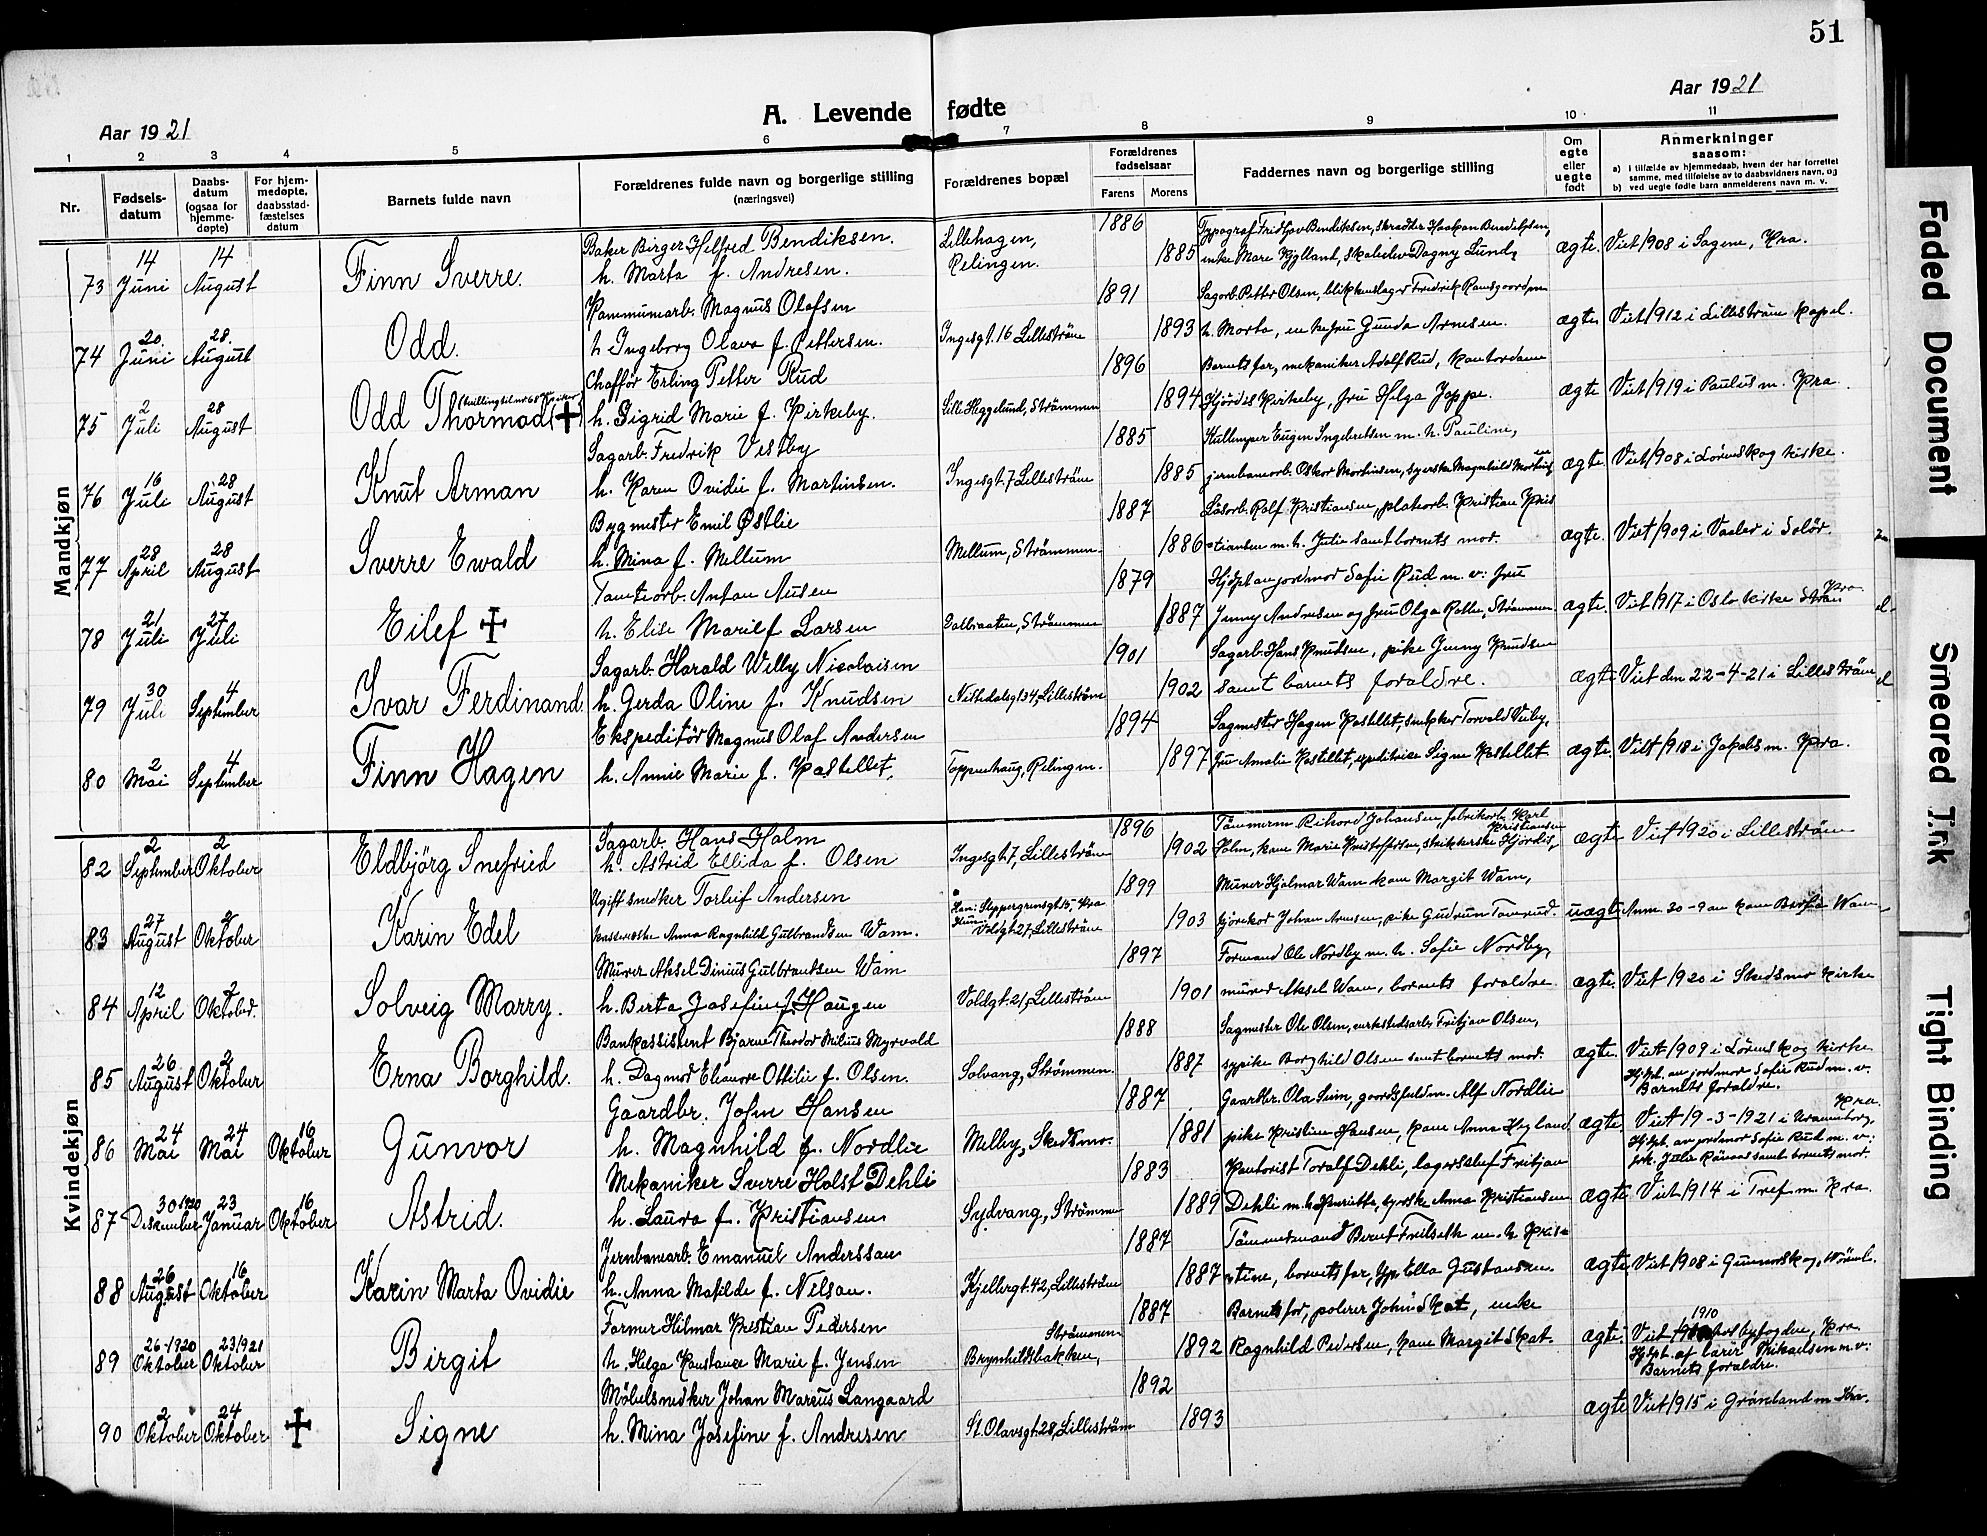 51
Aar 1921
A. Levende fødte
Aar 1921
1 2 3 4 5 6 7 8 9 10 11
Nr.
Fødsels-
datum
Daabs-
datum
(ogsaa for
hjemme-
døpte)
For hjem-
medøpte,
daabsstad-
fæstelses
datum
Barnets fulde navn
Forældrenes fulde navn og borgerlige stilling
(næringsvei)
Forældrenes bopæl
Forældrenes
fødselsaar
Farens Morens
Faddernes navn og borgerlige stilling
Om
egte
eller
uegte
født
Anmerkninger
saasom:
a) i tilfælde av hjemmedaab, hvem der har forrettet
samme, med tilføielse av to daabsvidners navn, og
b) ved uegte fødte barn anmelderens navn m. v.
Mandkjøn
73 14 Juni 14 August Finn Sverre.
Baker Birger Helfred Bendiksen.
h. Marta f. Andresen.
Lillehagen,
Relingen.
1886 1885
Typograf Fridtjov Bendiksen, skrædder Haakon Bendiksen,
enke Mare Kjylland, skoleelev Dagny Lund,
ægte. Viet 1908 i Sagene, Kra.
74 20. Juni 28. August Odd.
Kommunearb. Magnus Olafsen
h. Ingeborg Olava f. Pettersen.
Ingesgt. 16 Lilleström
1891 1893
Sagarb. Petter Olsen, blikkenslager Fredrik
h. Marta, en fru Gunda Arnesen.
ægte Viet 1912 i Lilleström kapel.
75 2 Juli 28 August Odd Thormod (+)
Chafför Erling Petter Rud
h. Sigrid Marie f. Kirkeby.
Lille Heggelund, Strömmen
1896 1894
Barnets far, mekaniker Adolf Rud, kontordame
Hjördis Kirkeby, fru Helga Joppe.
ægte Viet 1919 i Paulus m. Kra.
76 16 Juli 28 August Knut Arman
Sagarb. Fredrik Vestby
h. Karen Ovidie f. Martinsen.
Ingesgt. 7 Lilleström
1885 1885
Eugen Ingebretsen m. h. Pauline,
jernbanearb. Oskar Martinsen, syerske Magnhild
ægte Viet 1908 i Lörenskog kirke.
77 28 April 28 August Sverre Ewald
Bygmester Emil Østlie
h. Mina f. Mellum
Mellum, Strömmen.
1887 1886
Lösarb. Rolf Kristiansen, platearb. Kristian Kris
tiansen m. h. Julie samt barnets mor.
ægte. Viet 1909 i Vaaler i Solör.
78 21 Juli 27 Juli Eilef +
Tomtearb. Anton Ausen
h. Elise Marie f. Larsen
Dalbraaten, Strömmen
1879 1887
Hjdpt av jordmor Safie Rud m. v: fru
Jenny Andresen og fru Olga Rolle, Strømmen
ægte. Viet 1917 i Oslo kirke Kra
79 30 Juli 4 September Ivar Ferdinand
Sagarb. Harald Willy Nicolaisen
h. Gerda Oline f. Knudsen
Nittedalsg 134, Lilleström
1901 1902
Sagarb. Hans Knudsen, pike Jenny Knudsen
samt barnets foraldre.
ægte Viet den 22-4-21 i Lilleström
80 2 Mai 4 September Finn Hagen
Ekspeditör Magnus Olaf Andersen
h. Annie Marie f. Kastellet.
Toppenhaug, Relingen.
1894 1897
Sagmester Hagen Kastellet, snekker Torvald Vieby,
fru Amalie Kastellet, Signe Kastellet
ægte. Viet 1918 i Jakobs m. Kra.
Kvindekjøn
82 2 September 2 Oktober Eldbjörg Snefried
Sagarb. Hans Holm
h. Astrid Ellida f. Olsen
Ingesgt. 7, Lilleström
1896 1902
Tömmerm Rikard Johansen, fabrikarb. Karl
Kristiansen
Holm, kone Marie Kristoffersen, strikkerske Hjördis,
ægte Viet 1920 i Lilleström
83 27 August 2 Oktober Karin Edel
Ugift snedker Torleif Andersen
Anna Ragnhild Gulbrandsen Wam.
Han: Steppergrensgt 15, Kra
Hun: Voldgt 27, Lilleström
1899 1903
Murer Hjalmar Wam kone Margit Wam,
Johan Arnesen, pike Gudrun
uægte Anm. 30-9 av kone Berta Wam
84 12 April 2 Oktober. Solveig Marry.
Murer Aksel Dinius Gulbrantsen Wam
h. Berta Josefine f. Haugen
Voldgt. 21, Lilleström
1897 1901
Formand Ole Nordby m. h. Sofie Nordby,
murer Aksel Wam, barnets foraldre.
ægte. Viet 1920 i Skedsmo kirke
85 26 August 2 Oktober Erna Borghild.
Bankassistent Bjarne Theodor Milius Myrvold
h. Dagmor Eleanore Ottilie f. Olsen.
Solvang, Strömmen.
1888 1887
Sagmester Ole Olsen, verkstedsarb. Fritjav Olsen,
sypike Borghild Olsen samt barnets mor.
ægte. Viet 1909 i Lörenskog kirke
86 24 Mai 24 Mai 16 Oktober Gunvor
Gaardbr. John Hansen
h. Magnhild f. Nordlie
Melby, Skedsmo.
1887 1881
Gaardbr. Ola Sism, gaardsfuldm. Alf Nordlie
pike Kristine Hansen, kone Anna Hegland
Hjdpt. av jordmor Sofie Rud m. v.
Barnets foraldre.
ægte Viet 19-3-1921 i Uranienborg, Kra.
87 30 1920 Desember 23 Januar 16 Oktober Astrid.
Mekaniker Sverre Holst Dehli
h. Laura f. Kristiansen
Sydvang, Strömmen
1883 1889
Kontorist Toralf Dehli, lagerschef Fritjav
Dehli m. h. Henriette, syerske Anna Kristiansen
Hjdpt. av jordmor Sofie Rud m. v:
frk. Julie samt barnets mor.
ægte Viet 1914 i Tref. m. Kra.
88 26 August 16 Oktober Karin Marta Ovidie
Jernbanearb. Emanuel Anderssan
h. Anna Matilde f. Nelson.
Kjellergt. 42, Lilleström
1887 1887
Tömmermand Bernt Trelseth m. h. Kris-
tine, barnets far, Ella Gustavsen
ægte Viet 1908 i Gunnarskog, Värml.
89 26-1920 Oktober 23 1921 Oktober Birgit
Farmer Hilmar Kristian Pedersen
h. Helga Konstance Marie f. Jensen
Strömmen
Brynhildsbakken,
1887 1892
Barnets far, polerer John Skat, enke
Ragnhild Pedersen, kone Margit Skat.
ægte. Viet 1910 byfogden, Kra
Hjdpt. af lærer Mikaelsen m. v:
Barnets foraldre.
90 2 Oktober 24 Oktober + Signe
Möbelsnedker Johan Marcus Langaard
h. Mina Josefine f. Andresen
St. Olavsgt. 28, Lilleström
1892 1893
ægte Viet 1915 i Grönland m Kra.
Faded Document
Smeared Ink
Tight Binding